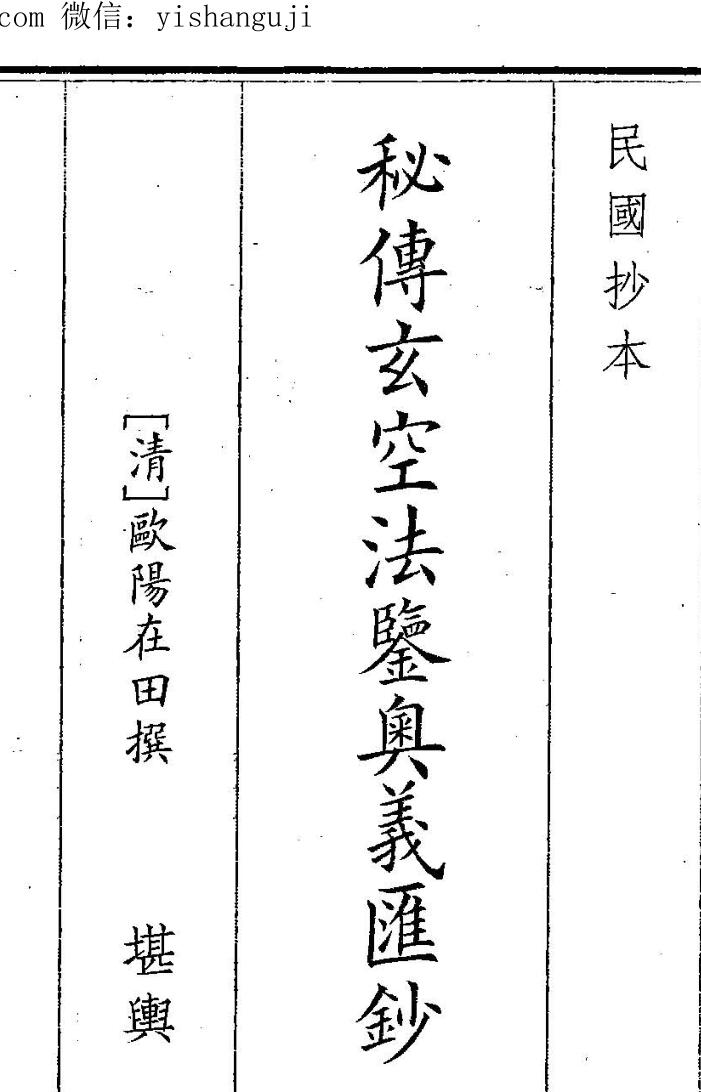 com 微信：yishanguji
民國抄本
秘傳玄空法鑒奧義匯鈔
[清]歐陽在田撰 堪輿